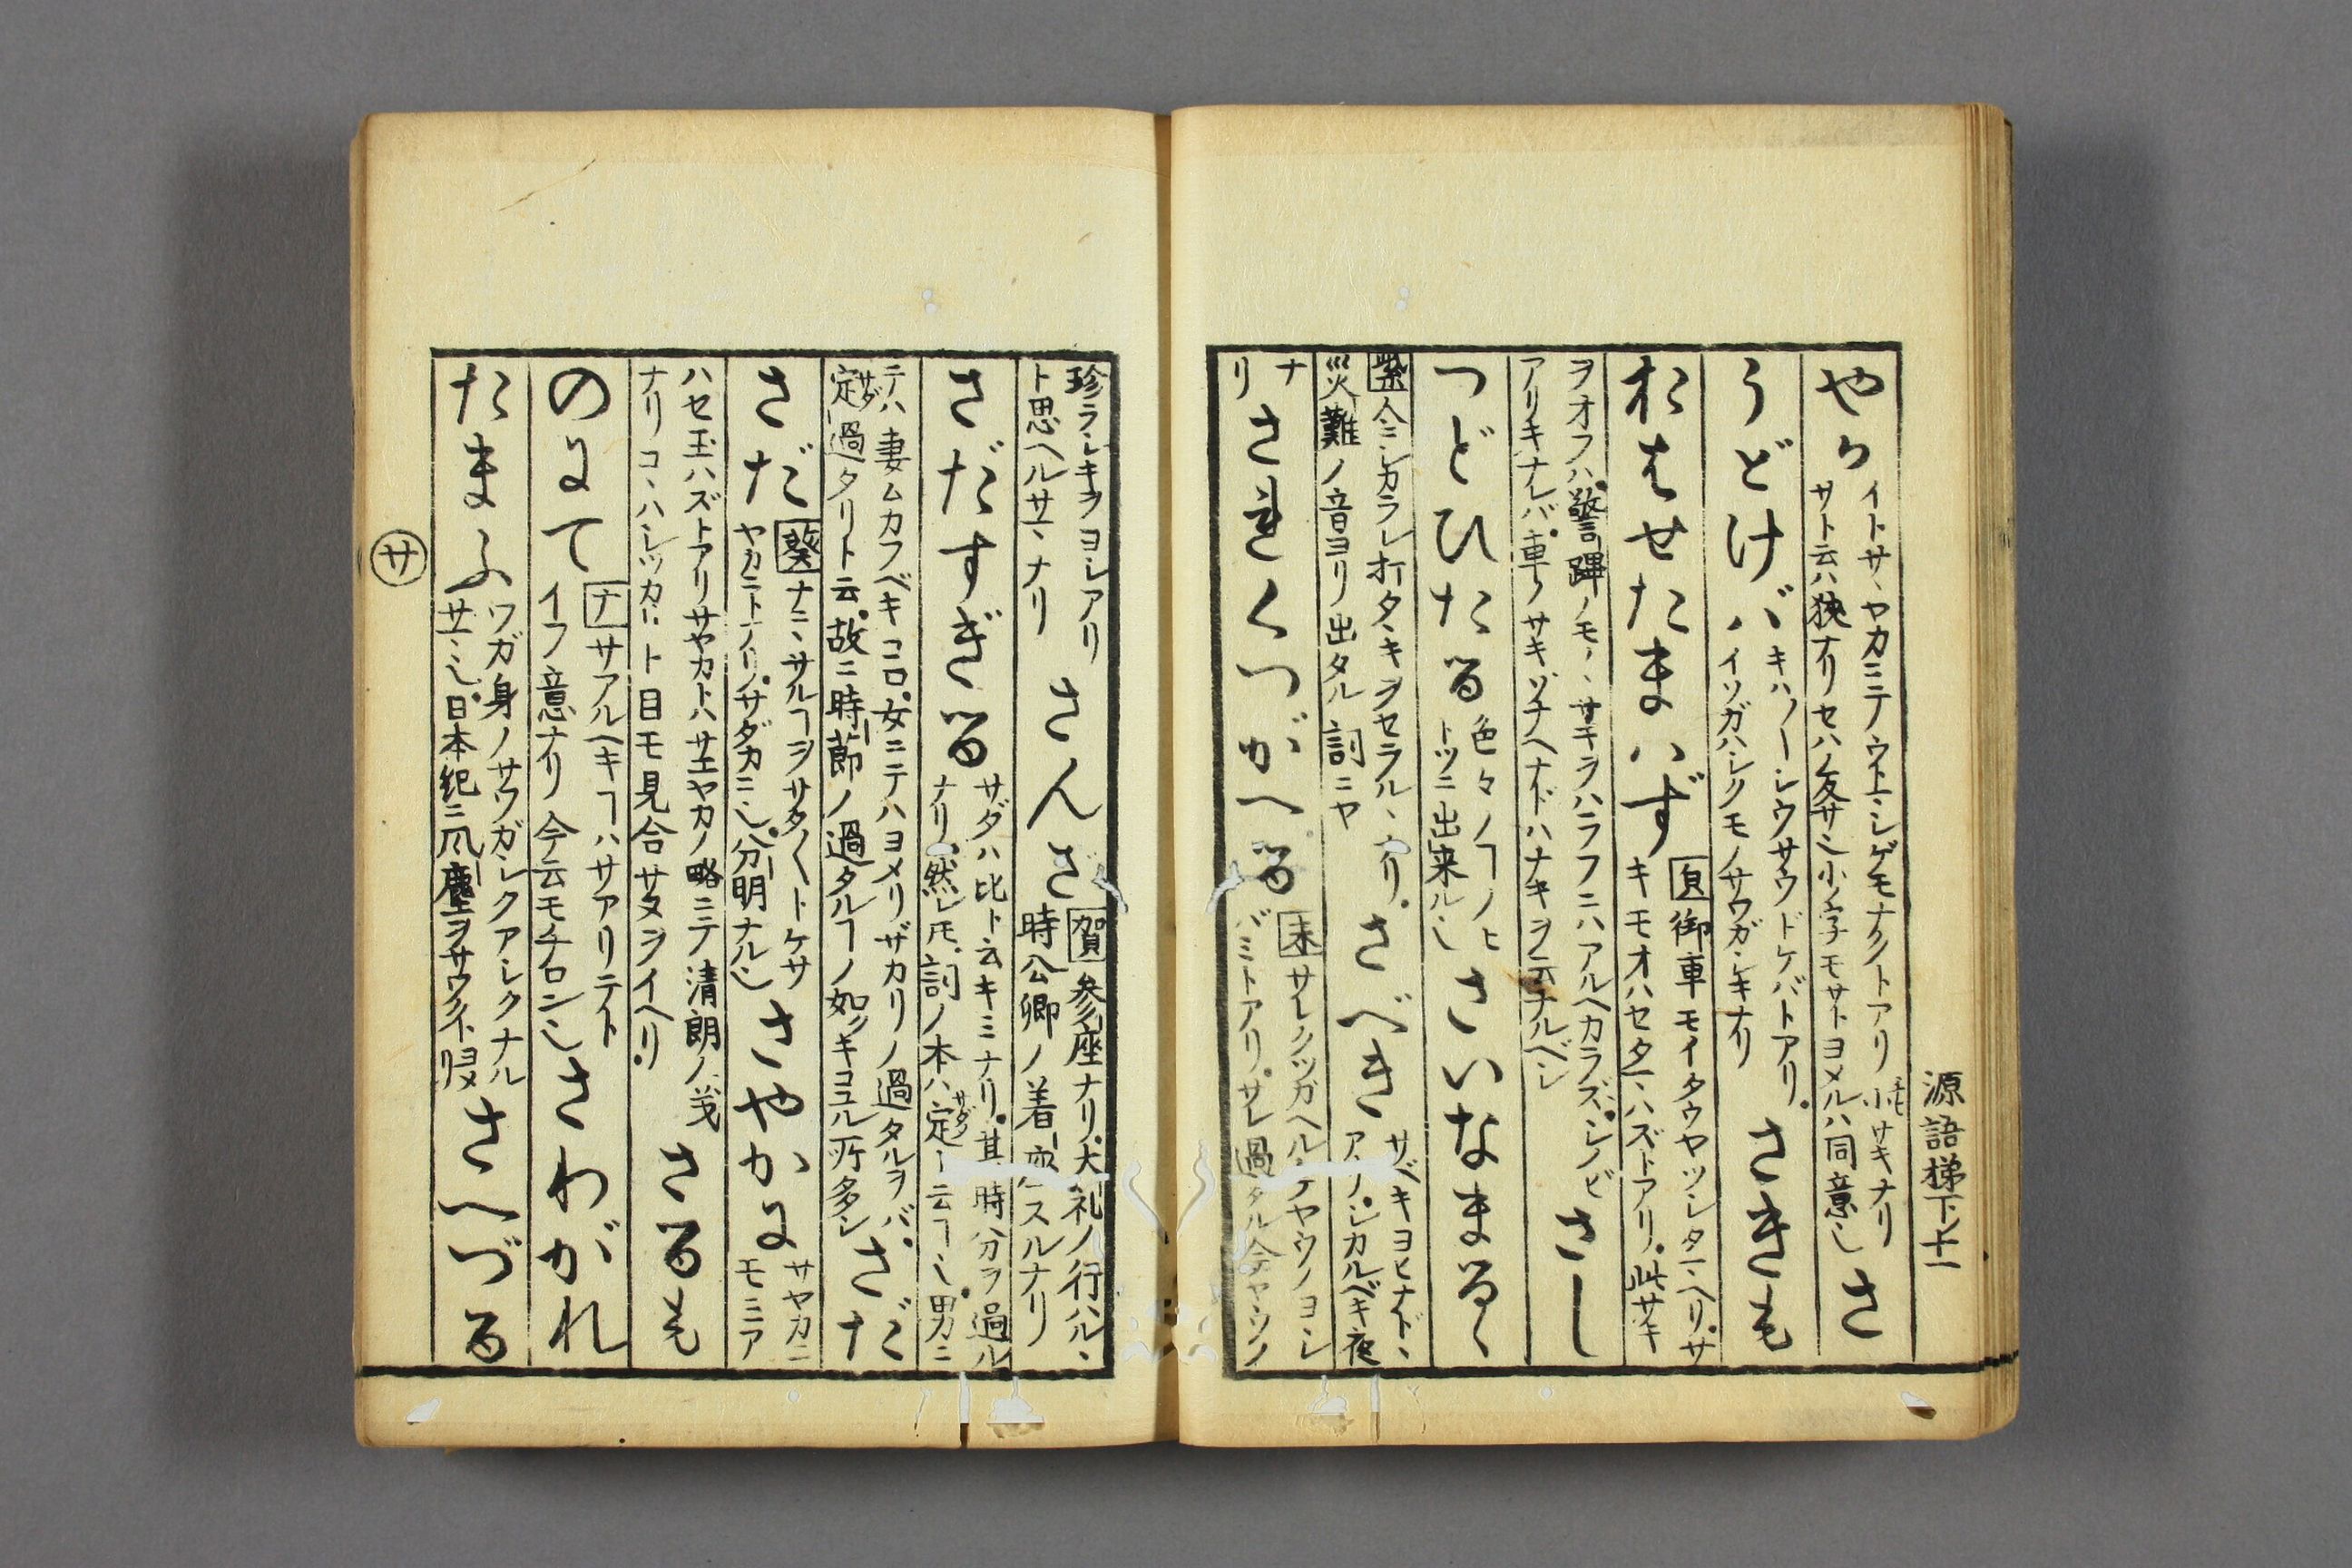 源語梯下ノ十一
やか イトサヽヤカニテウトシゲモナクトアリ 小サキナリ
サト云ハ狭ナリセハノ反サ也小ノ字モサトヨメルハ同意也 さ
うどけバ キハ〳〵シウサウドケバトアリ
イソガハシクモノサワガシキナリ さきも
おはせたまハず 御車モイタウヤツシタマヘリサ
キモオハセタマハズトアリ此サキ
ヲオフハ警蹕ノモノヽサキヲハラフニハアルヘカラズシノビ
アリキナレバ車ノサキヅナヘナドハナキヲ云ナルベシ さし
つどひたる 色々ノコトノヒ
トツニ出来ル也 さいなまるゝ
紫 今シカラレ打タヽキヲセラルヽナリ
災難ノ音ヨリ出タル詞ニヤ さべき サベキヨヒナドヽ
アリシカルベキ夜
ナ
リ されくつがへる 末 サレクツガヘル今ヤウノヨシ
バミトアリサレ過タル今ヤウノ
珍ラシキヲヨシアリ
ト思ヘルサマナリ さんざ 賀 参座ナリ大礼ノ行ハルヽ
時公卿ノ着座スルナリ
さだすぎる サダハ比ト云キミナリ其時分ヲ過ル
ナリ然レ𪜈詞ノ本ハ定ト云コト也男ニ
テハ妻ムカフベキコロ女ニテハヨメリザカリノ過タルヲバ
定過タリト云故ニ時節ノ過タルコトノ如クキコユル所多シ さだ
さだ 葵 ナニサルコトヲサタ〳〵トケサ
ヤカニトアリサダカニ也分明ナル也 さやかに サヤカニ
モミア
ハセ玉ハズトアリサヤカトハサエヤカノ略ニテ清朗ノ義
ナリコヽハシツカリト目モ見合サヌヲイヘリ さるも
のにて サアルヘキコトハサアリテト
イフ意ナリ今云モチロン也 さわがれ
たまふ ワガ身ノサワガシクアシクナル
サマ也日本紀ニ風塵ヲサワクト訓リ さへづる
サ